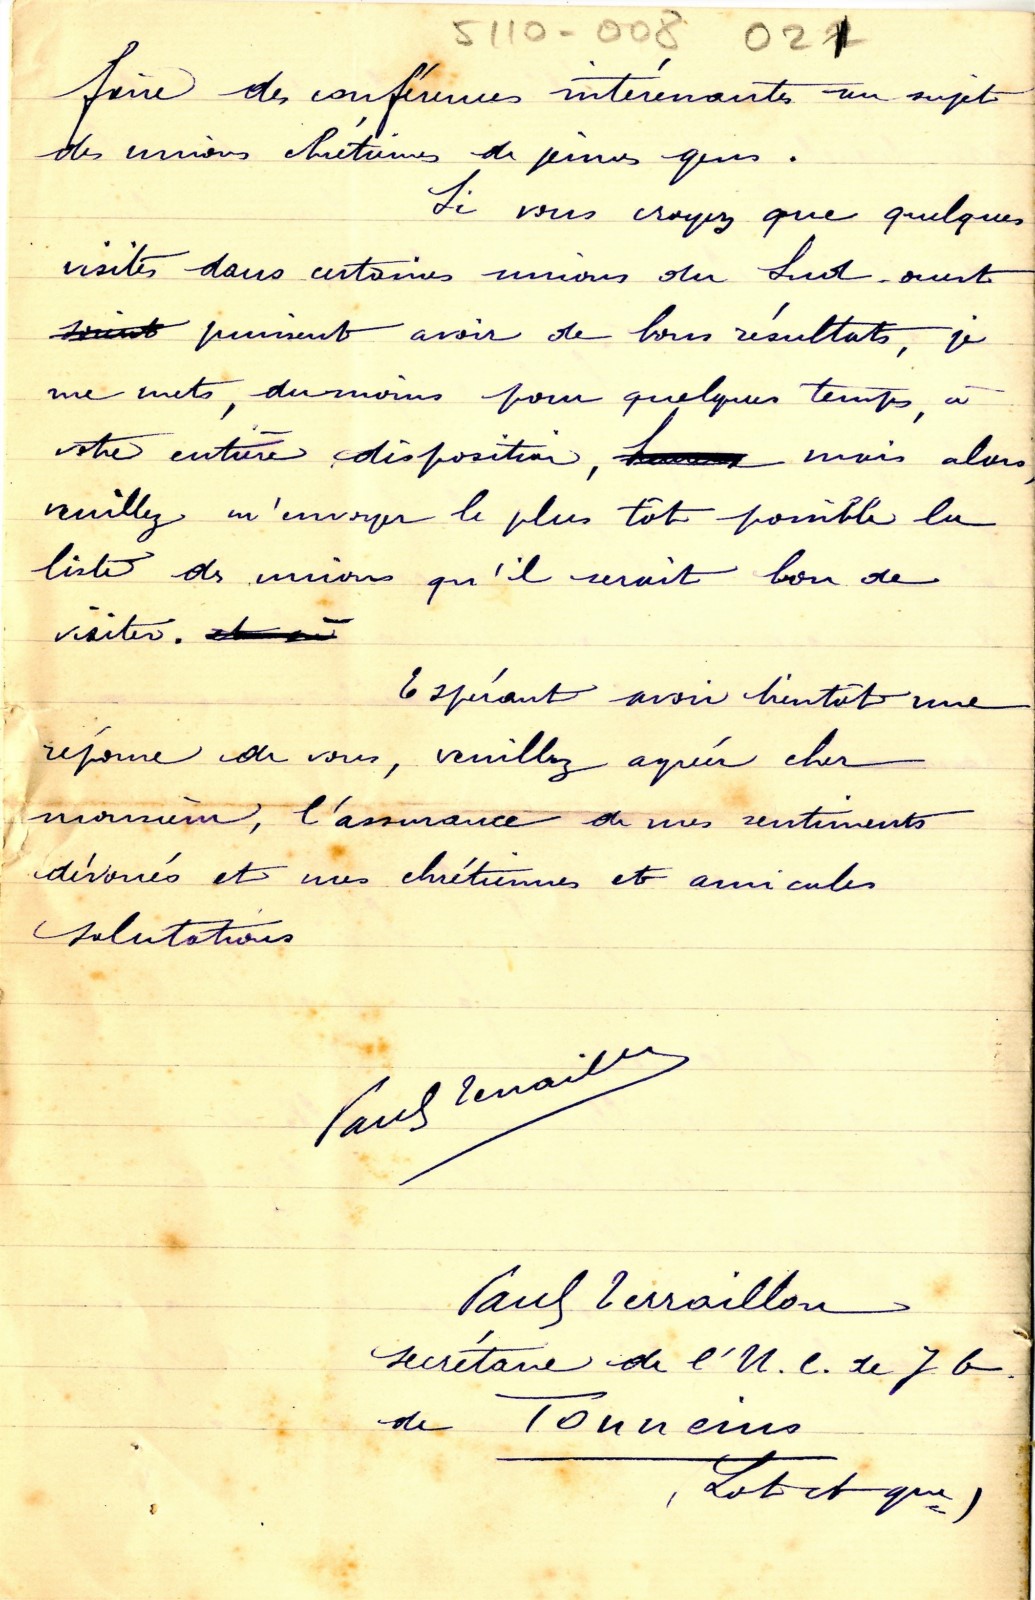 5110-008 021
faire des conférences intéressantes au sujet
des unions chrétiennes de jeunes gens.
Si vous croyez que quelques
visites dans certaines unions du Sud-ouest
soient puissent avoir de bons résultats, je
me mets, du moins pour quelques temps, à
votre entière disposition, mais alors,
veuillez m'envoyer le plus tôt possible la
liste des unions qu'il serait bon de
visiter. et si
Espérant avoir bientôt une
réponse de vous, veuillez agréer cher
monsieur, l'assurance de mes sentiments
dévoués et mes chrétiennes et amicales
salutations
Paul Terraillon
Paul Terraillon
secrétaire de l'U. C. de J G.
de Tonneins
(Lot et Gne)